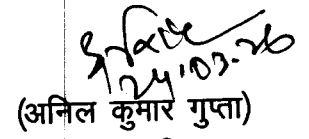 24.03.26
(अनिल कुमार गुप्ता)